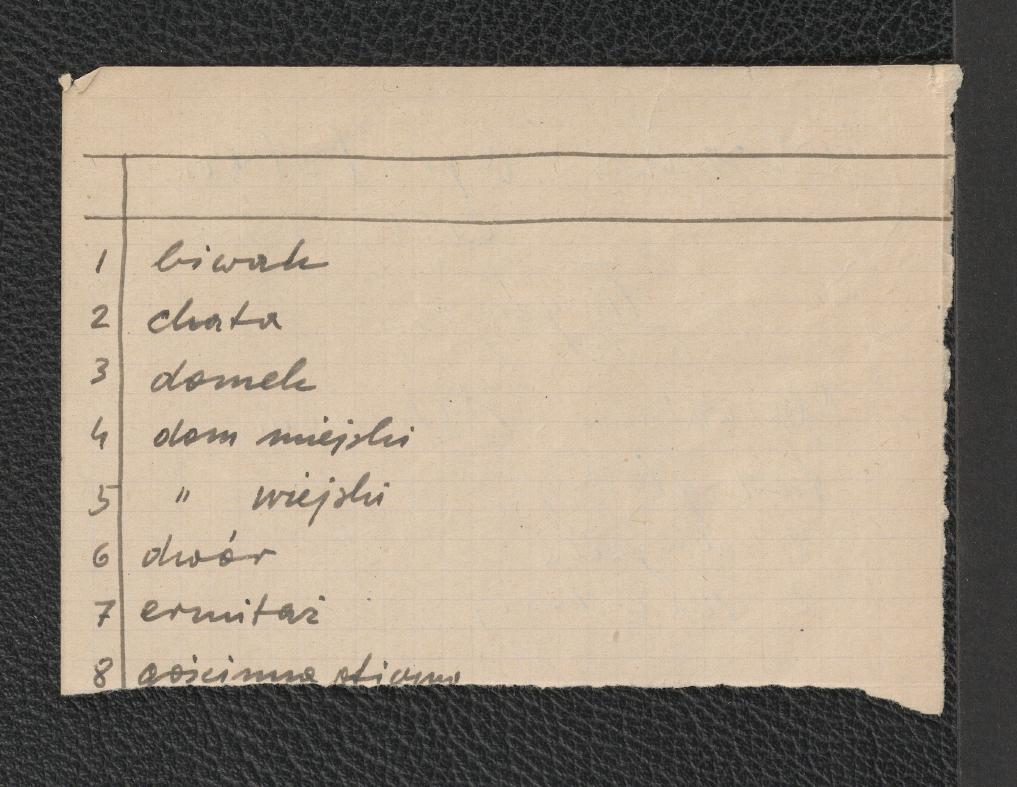 1 biwak
2 chata
3 domek
4 dom miejski
5 " wiejski
6 dwór
7 ermitaż
8 gościnna